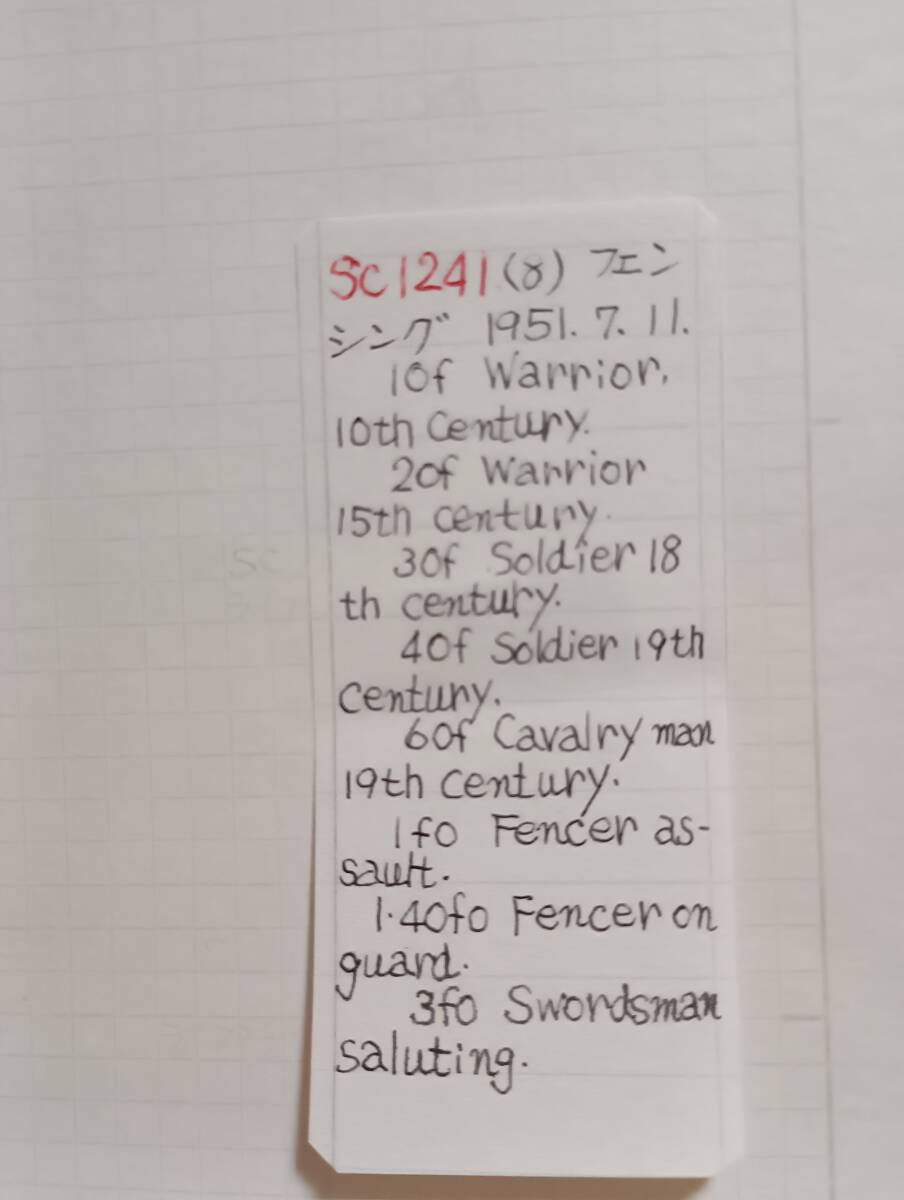 SC1241(8) フェン
シング 1951. 7. 11.
10f Warrior.
10th Century.
20f Warrior
15th century.
30f Soldier 18
th century.
40f Soldier 19th
century.
60f Cavalry man
19th century.
1fo Fencer as-
sault.
1.40fo Fencer on
guard.
3fo Swordsman
saluting.